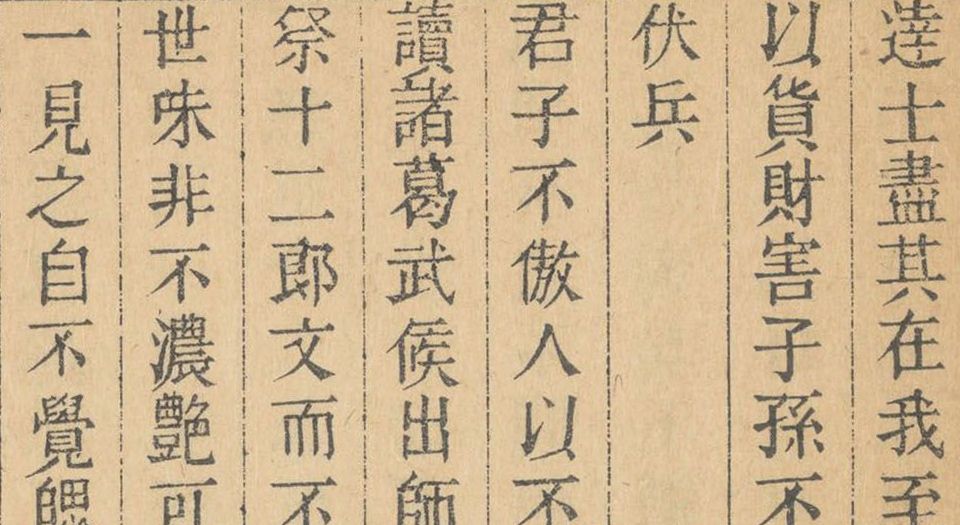 達士盡其在我至
以貨財害子孫不
伏兵
君子不傲人以不
讀諸葛武侯出師
祭十二郎文而不
世味非不濃艶可
一見之自不覺